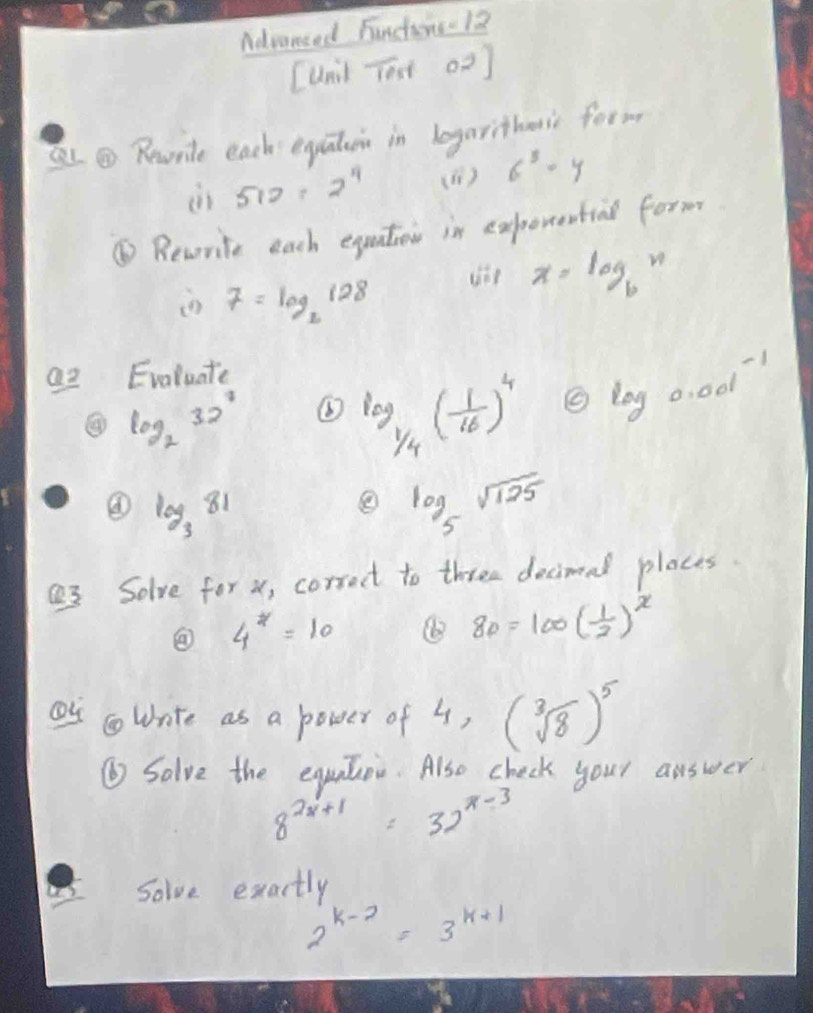 Advanced Functions-12
[Unit Test 02]
Q1 ⓐ Rewrite each equation in logarithmic form
(i) 512 = 2⁹ (ii) 6³ = y
ⓑ Rewrite each equation in exponential form.
(i) 7 = log₂ 128 (ii) x = log_b n
Q2 Evaluate
ⓐ log₂ 32³ ⓑ log_{1/4} (1/16)⁴ ⓒ log 0.001⁻¹
ⓓ log₃ 81 ⓔ log₅ √125
Q3 Solve for x, correct to three decimal places.
ⓐ 4ˣ = 10 ⓑ 80 = 100 (1/2)ˣ
Q4 ⓐ Write as a power of 4, (∛8)⁵
ⓑ Solve the equation. Also check your answer.
8^{2x+1} = 32^{x-3}
Q5 Solve exactly
2^{k-2} = 3^{k+1}